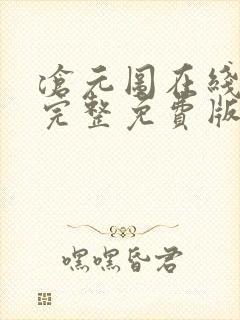 滄元图在线
完整免費版
嘿嘿昏君